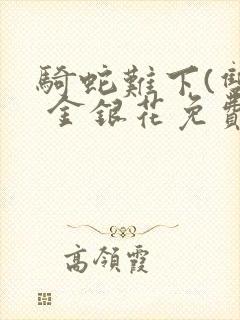 騎蛇難下(雙
金銀花免費
高領霞